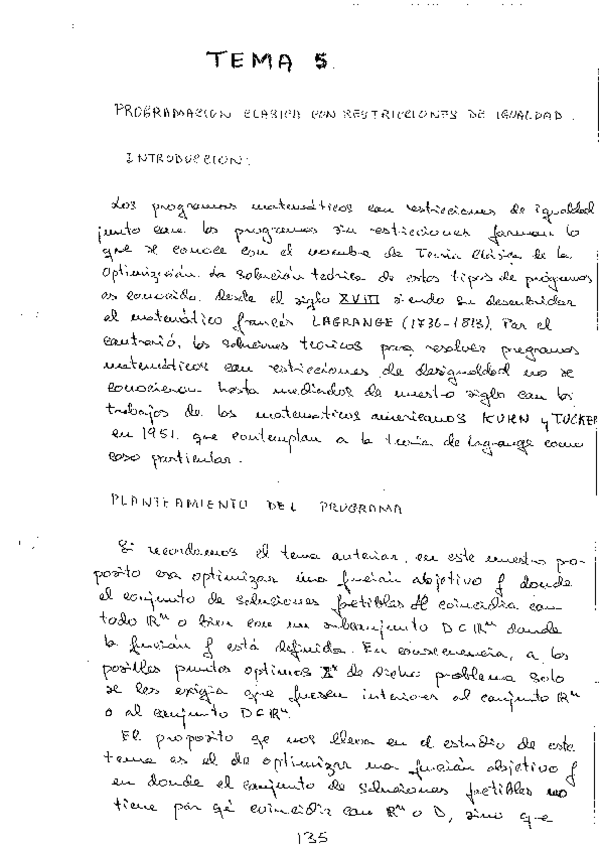 TEMA 5.
PROGRAMACION CLASICA CON RESTRICCIONES DE IGUALDAD.
INTRODUCCION:
Los programas matemáticos con restricciones de igualdad
junto con los programas sin resticciones forman lo
que se conoce con el nombre de Teoría Clásica de la
Optimización. La solución teórica de estos tipos de programas
es conocida desde el siglo XVIII siendo su descubridor
el matemático francés LAGRANGE (1736-1813). Por el
contrario, las soluciones teóricas para resolver programas
matemáticos con restricciones de desigualdad no se
conocieron hasta mediados de nuestro siglo con los
trabajos de los matemáticos americanos KUHN y TUCKER
en 1951. que contemplan a la teoría de Lagrange como
caso particular.
PLANTEAMIENTO DEL PROGRAMA
Si recordamos el tema anterior, en este nuestro pro-
posito era optimizar una función objetivo f donde
el conjunto de soluciones factibles H coincidia con
todo ℝⁿ o bien con un subconjunto D⊂ℝⁿ donde
la función f está definida. En consecuencia, a los
posibles puntos optimos X* de dicho problema solo
se les exigia que fuesen interiores al conjunto ℝⁿ
o al conjunto D⊂ℝⁿ.
El proposito qe nos lleva en el estudio de este
tema es el de optimizar una función objetivo f
en donde el conjunto de soluciones factibles no
tiene por qé coincidir con ℝⁿ o D, sino que
135